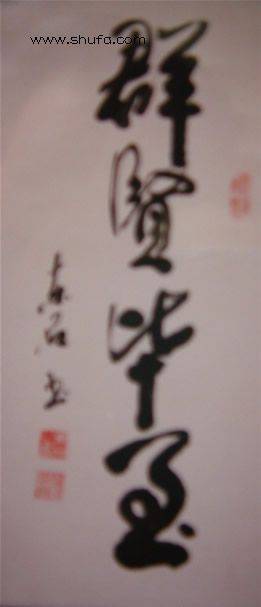 www.shufa.com
群贤毕至